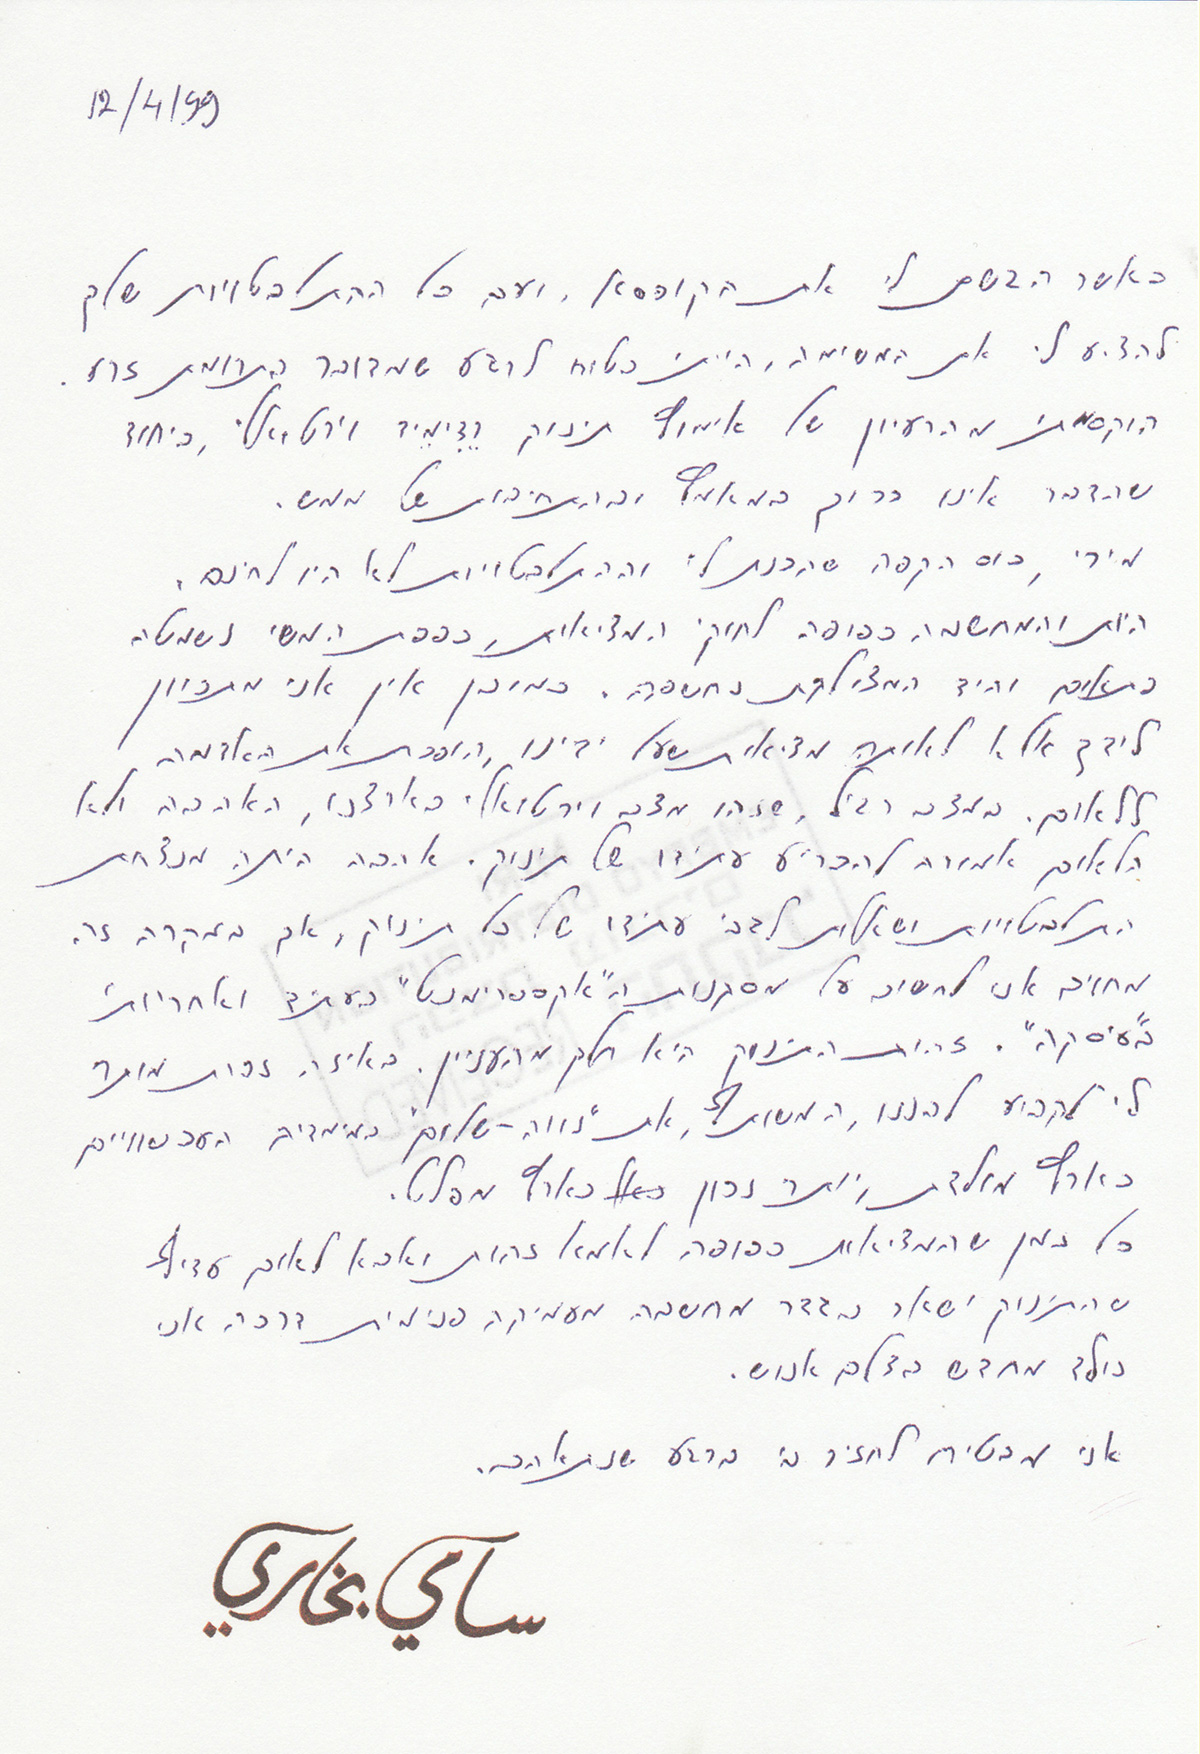 12/4/99
כאשר הגשת לי את הקופסא, ועם כל ההתלבטויות שלך
להציע לי את המשימה, הייתי בטוח לרגע שמדובר בתרומת זרע.
הוקסמתי מהרעיון של אימוץ תינוק רֶדִימֵיד וירטואלי, ביחוד
שהדבר אינו כרוך במאמץ ובהתחיבות של ממש.
מירי, כוס הקפה שהכנת לי וההתלבטויות לא היו לחינם.
היות והמחשבה כפופה לחוקי המציאות, כפפת המשי נשמטה
פתאום והיד המצולקת נחשפה. כמובן אין אני מתכוון
לידך אלא לאותה מציאות שעל ידינו, הופכת את האדמה
ללאום. במצב רגיל, שזהו מצב וירטואלי בארצנו, האהבה ולא
הלאום אמורה להכריע עתידו של תינוק. אהבה היתה מנצחת
התלבטויות ושאלות לגבי עתידו של כל תינוק, אך במקרה זה
מחויב אני לחשוב על מסקנות ה"אקספרימנט" בעתיד ואחריותי
ב"עיסקה". זהות התינוק היא חלק מהעניין. באיזה זכות מותר
לי לקבוע לבננו, המשותף, את "נווה-שלום" במימדיה העכשוויים
כארץ מולדת, יותר נכון כארץ מפלט.
כל זמן שהמציאות כפופה לאמא זהות ואבא לאום עדיף
שהתינוק ישאר בגדר מחשבה מעמיקה פנימית דרכה אני
נולד מחדש בצלם אנוש.
אני מבטיח לחזיר בי ברגע שנתאהב.
سامي بخاري